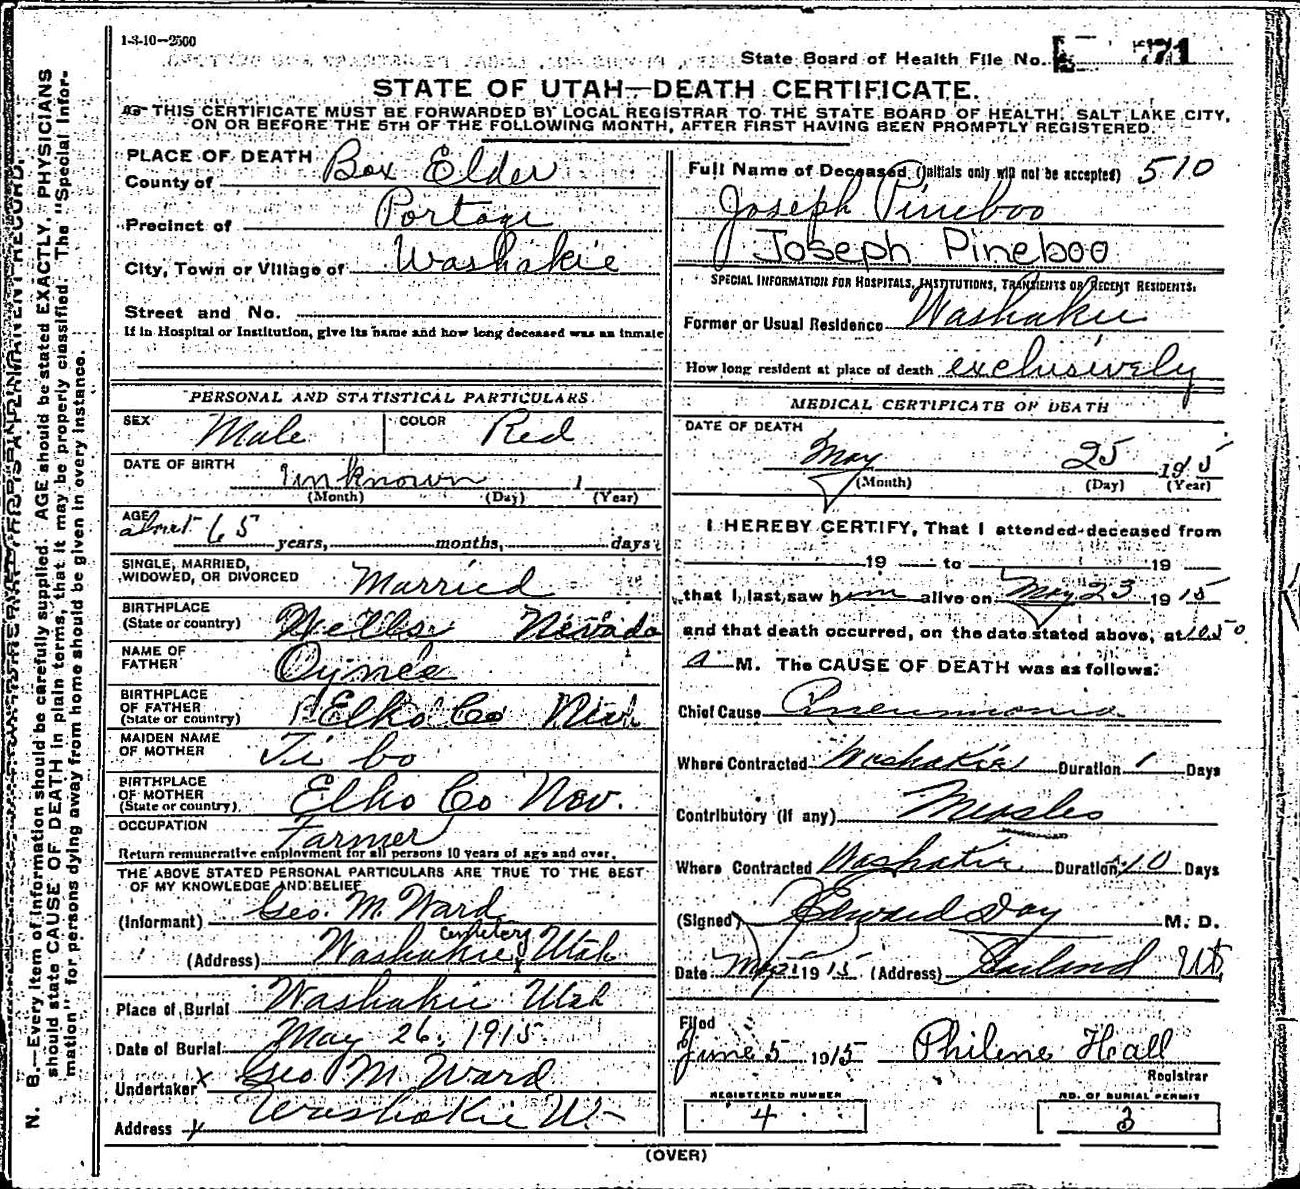 1-3-10—2500
State Board of Health File No. 71
STATE OF UTAH—DEATH CERTIFICATE.
THIS CERTIFICATE MUST BE FORWARDED BY LOCAL REGISTRAR TO THE STATE BOARD OF HEALTH, SALT LAKE CITY,
ON OR BEFORE THE 5TH OF THE FOLLOWING MONTH, AFTER FIRST HAVING BEEN PROMPTLY REGISTERED.
N. B.—Every item of information should be carefully supplied. AGE should be stated EXACTLY. PHYSICIANS
should state CAUSE OF DEATH in plain terms, that it may be properly classified. The "Special Infor-
mation" for persons dying away from home should be given in every instance.
PLACE OF DEATH
County of Box Elder
Precinct of Portage
City, Town or Village of Washakie
Street and No.
If in Hospital or Institution, give its name and how long deceased was an inmate
PERSONAL AND STATISTICAL PARTICULARS.
SEX Male COLOR Red
DATE OF BIRTH unknown
(Month) (Day) (Year)
AGE about 65 years, months, days
SINGLE, MARRIED,
WIDOWED, OR DIVORCED Married
BIRTHPLACE
(State or country) Wells Nevada
NAME OF
FATHER
BIRTHPLACE
OF FATHER
(State or country) Elko Co
MAIDEN NAME
OF MOTHER Ti bo
BIRTHPLACE
OF MOTHER
(State or country) Elko Co Nev.
OCCUPATION Farmer
Return remunerative employment for all persons 10 years of age and over.
THE ABOVE STATED PERSONAL PARTICULARS ARE TRUE TO THE BEST
OF MY KNOWLEDGE AND BELIEF
(Informant) Geo. M. Ward
cemetery
(Address) Washakie Utah
Place of Burial Washakie Utah
Date of Burial May 26, 1915
Undertaker x Geo M. Ward
Address Washakie Ut
Full Name of Deceased (Initials only will not be accepted) 510
Joseph Pineboo
Joseph Pineboo
SPECIAL INFORMATION FOR HOSPITALS, INSTITUTIONS, TRANSIENTS OR RECENT RESIDENTS.
Former or Usual Residence Washakie
How long resident at place of death exclusively
MEDICAL CERTIFICATE OF DEATH
DATE OF DEATH
May 25 1915
(Month) (Day) (Year)
I HEREBY CERTIFY, That I attended deceased from
19 to 19
that I last saw him alive on May 23 1915
and that death occurred, on the date stated above, at
a M. The CAUSE OF DEATH was as follows:
Chief Cause Pneumonia
Where Contracted Washakie Duration 1 Days
Contributory (If any) Measles
Where Contracted Washakie Duration 10 Days
(Signed) Edward Day M. D.
Date 1915 (Address) Garland Ut,
Filed
June 5 1915 Philene Hall
Registrar
REGISTERED NUMBER
4
NO. OF BURIAL PERMIT
3
(OVER)